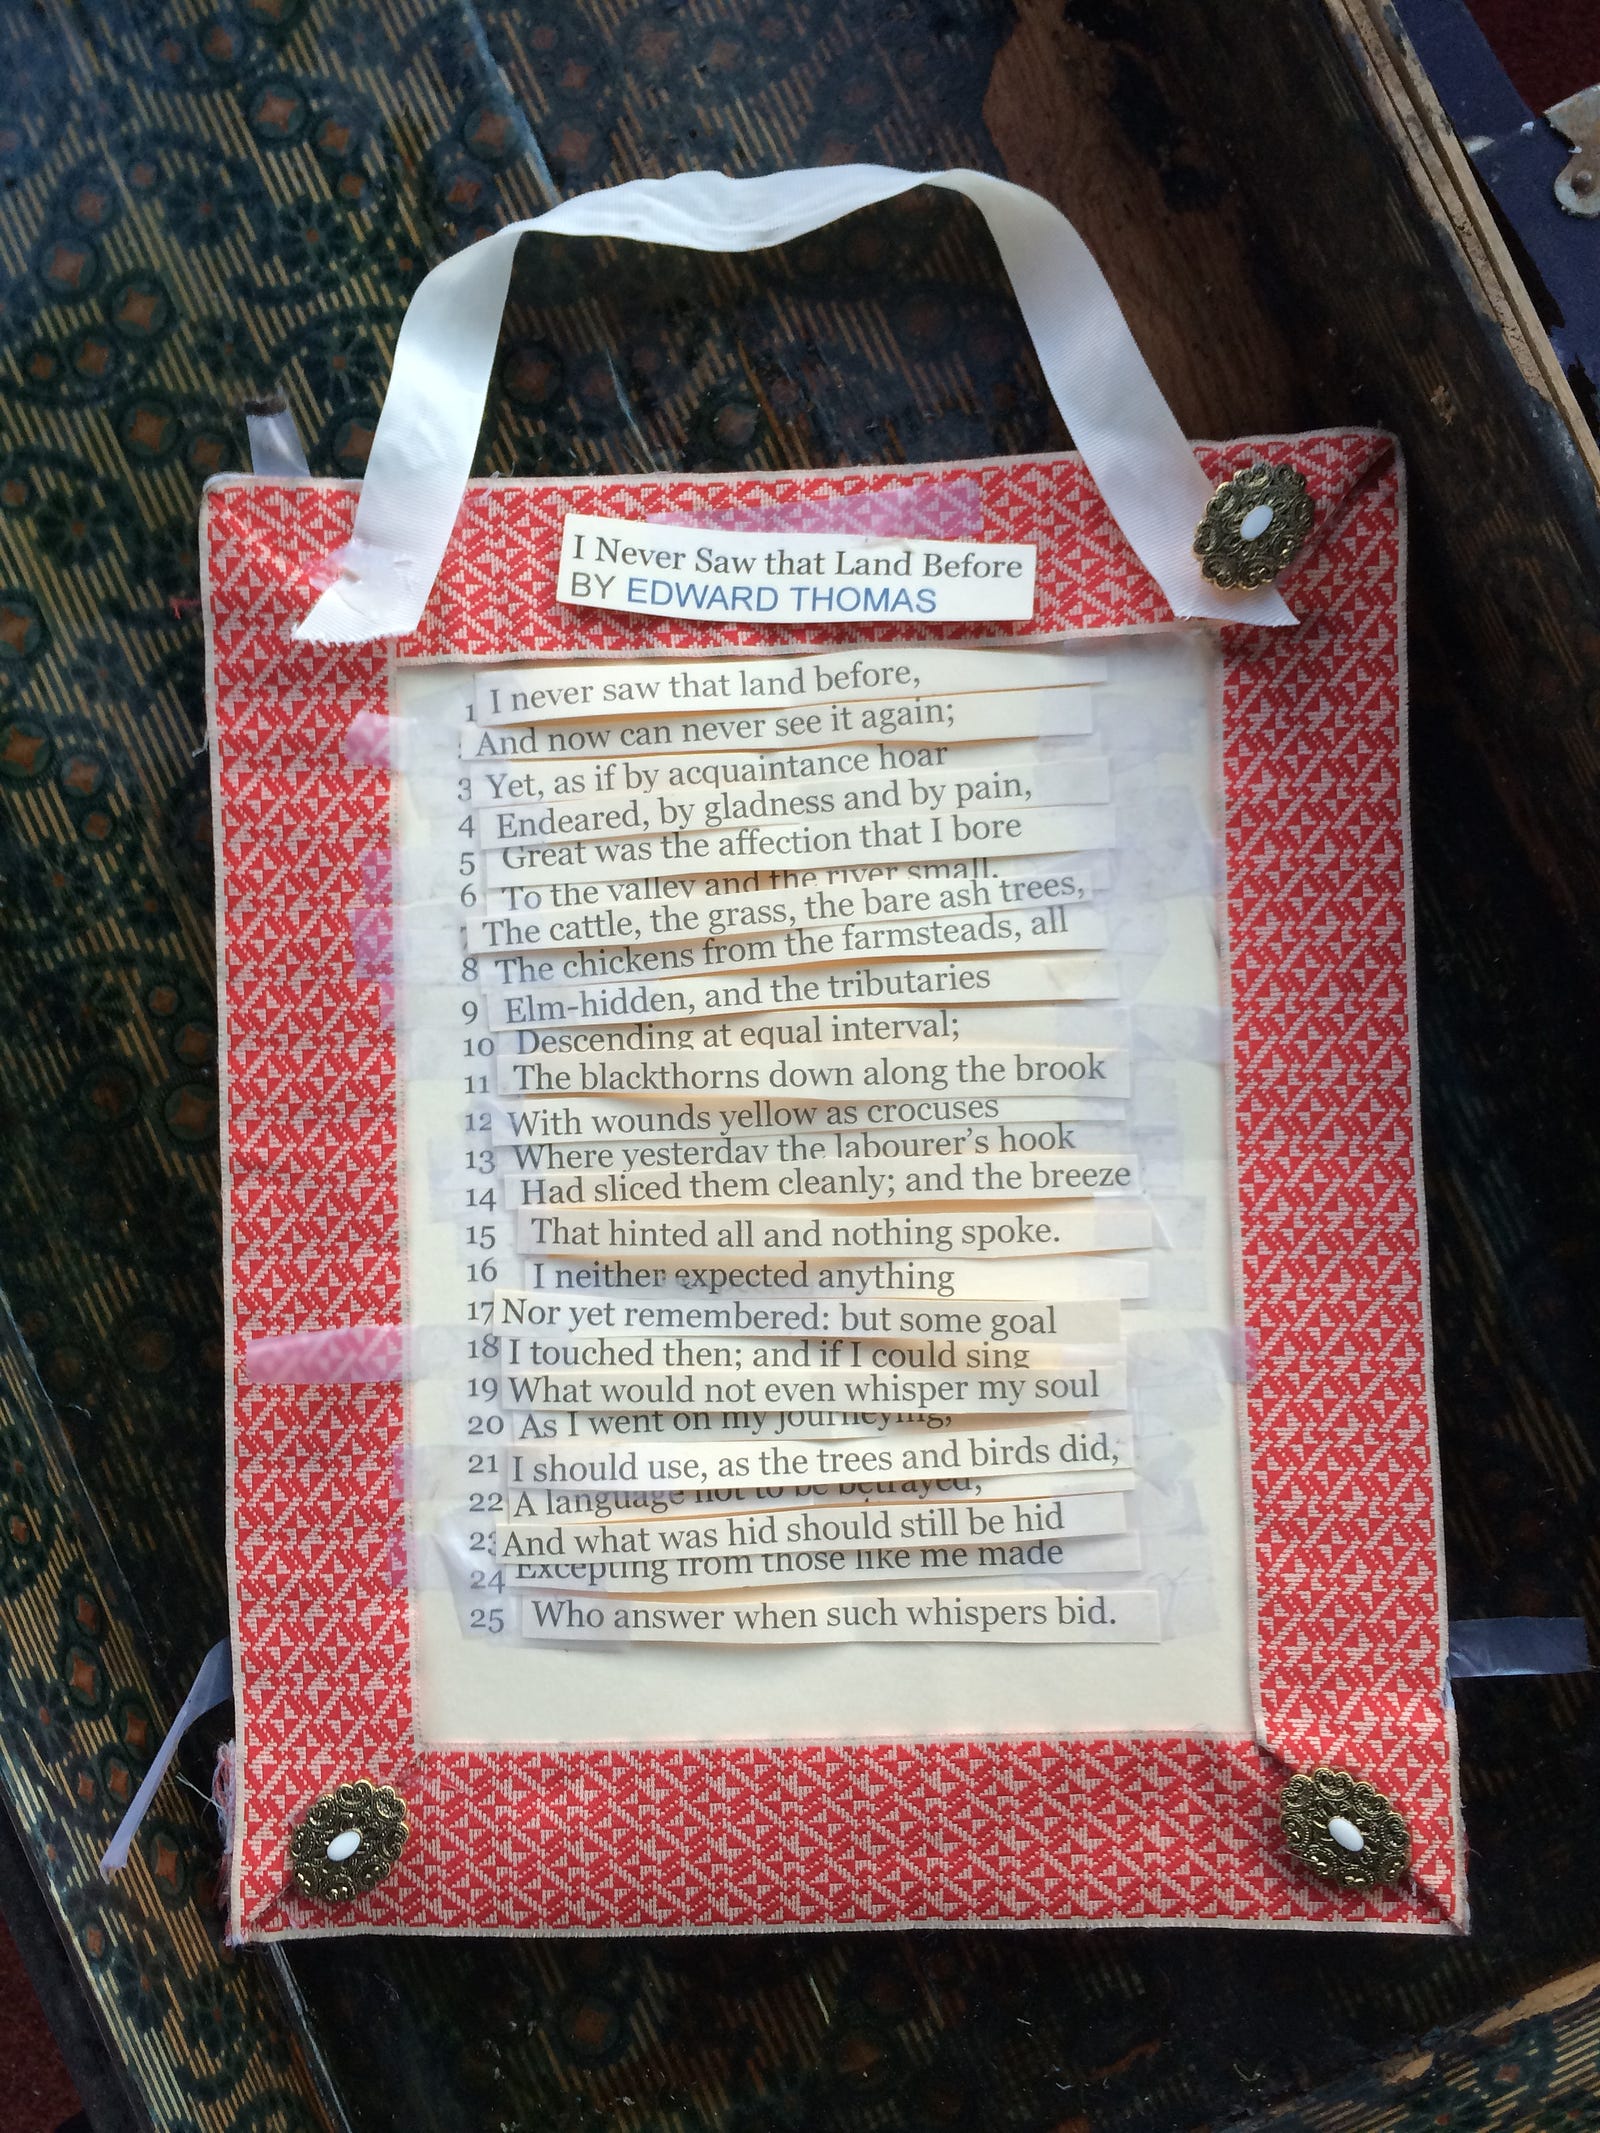 I Never Saw that Land Before
BY EDWARD THOMAS
1 I never saw that land before,
And now can never see it again;
3 Yet, as if by acquaintance hoar
4 Endeared, by gladness and by pain,
5 Great was the affection that I bore
6 To the valley and the river small,
The cattle, the grass, the bare ash trees,
8 The chickens from the farmsteads, all
9 Elm-hidden, and the tributaries
10 Descending at equal interval;
11 The blackthorns down along the brook
12 With wounds yellow as crocuses
13 Where yesterday the labourer's hook
14 Had sliced them cleanly; and the breeze
15 That hinted all and nothing spoke.
16 I neither expected anything
17 Nor yet remembered: but some goal
18 I touched then; and if I could sing
19 What would not even whisper my soul
20 As I went on my journeying,
21 I should use, as the trees and birds did,
22 A language not to be betrayed;
23 And what was hid should still be hid
24 Excepting from those like me made
25 Who answer when such whispers bid.